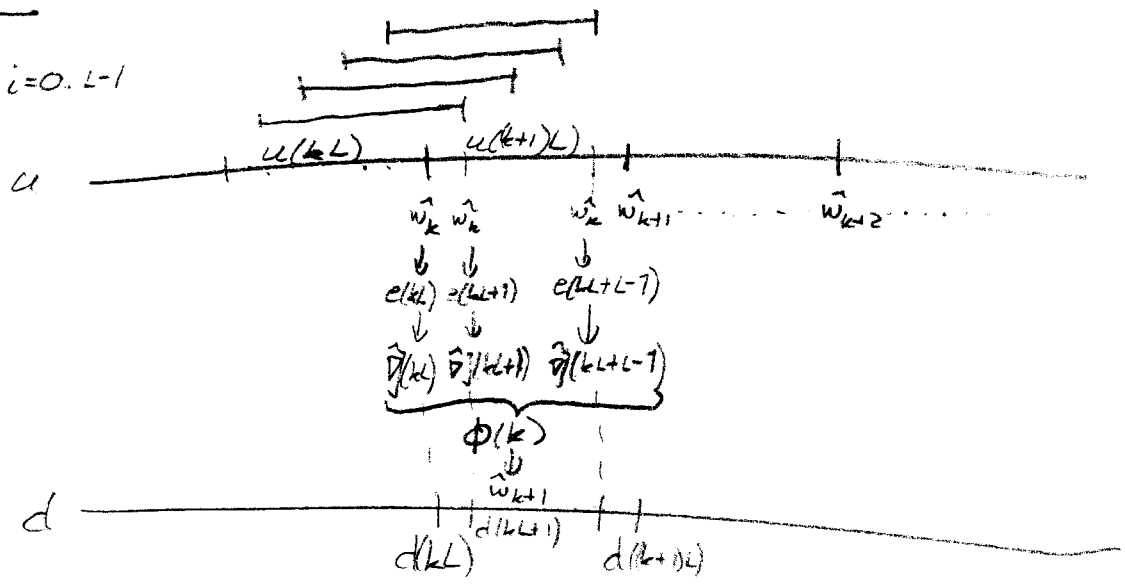 i=0..L-1
u(kL) u(k+1)L)
u
ŵ_k ŵ_k ŵ_k ŵ_{k+1} ........ ŵ_{k+2} ......
↓ ↓ ↓
e(kL) e(kL+1) e(kL+L-1)
↓ ↓ ↓
∇̂J(kL) ∇̂J(kL+1) ∇̂J(kL+L-1)
Φ(k)
⇓
ŵ_{k+1}
d
d(kL+1)
d(kL) d((k+1)L)